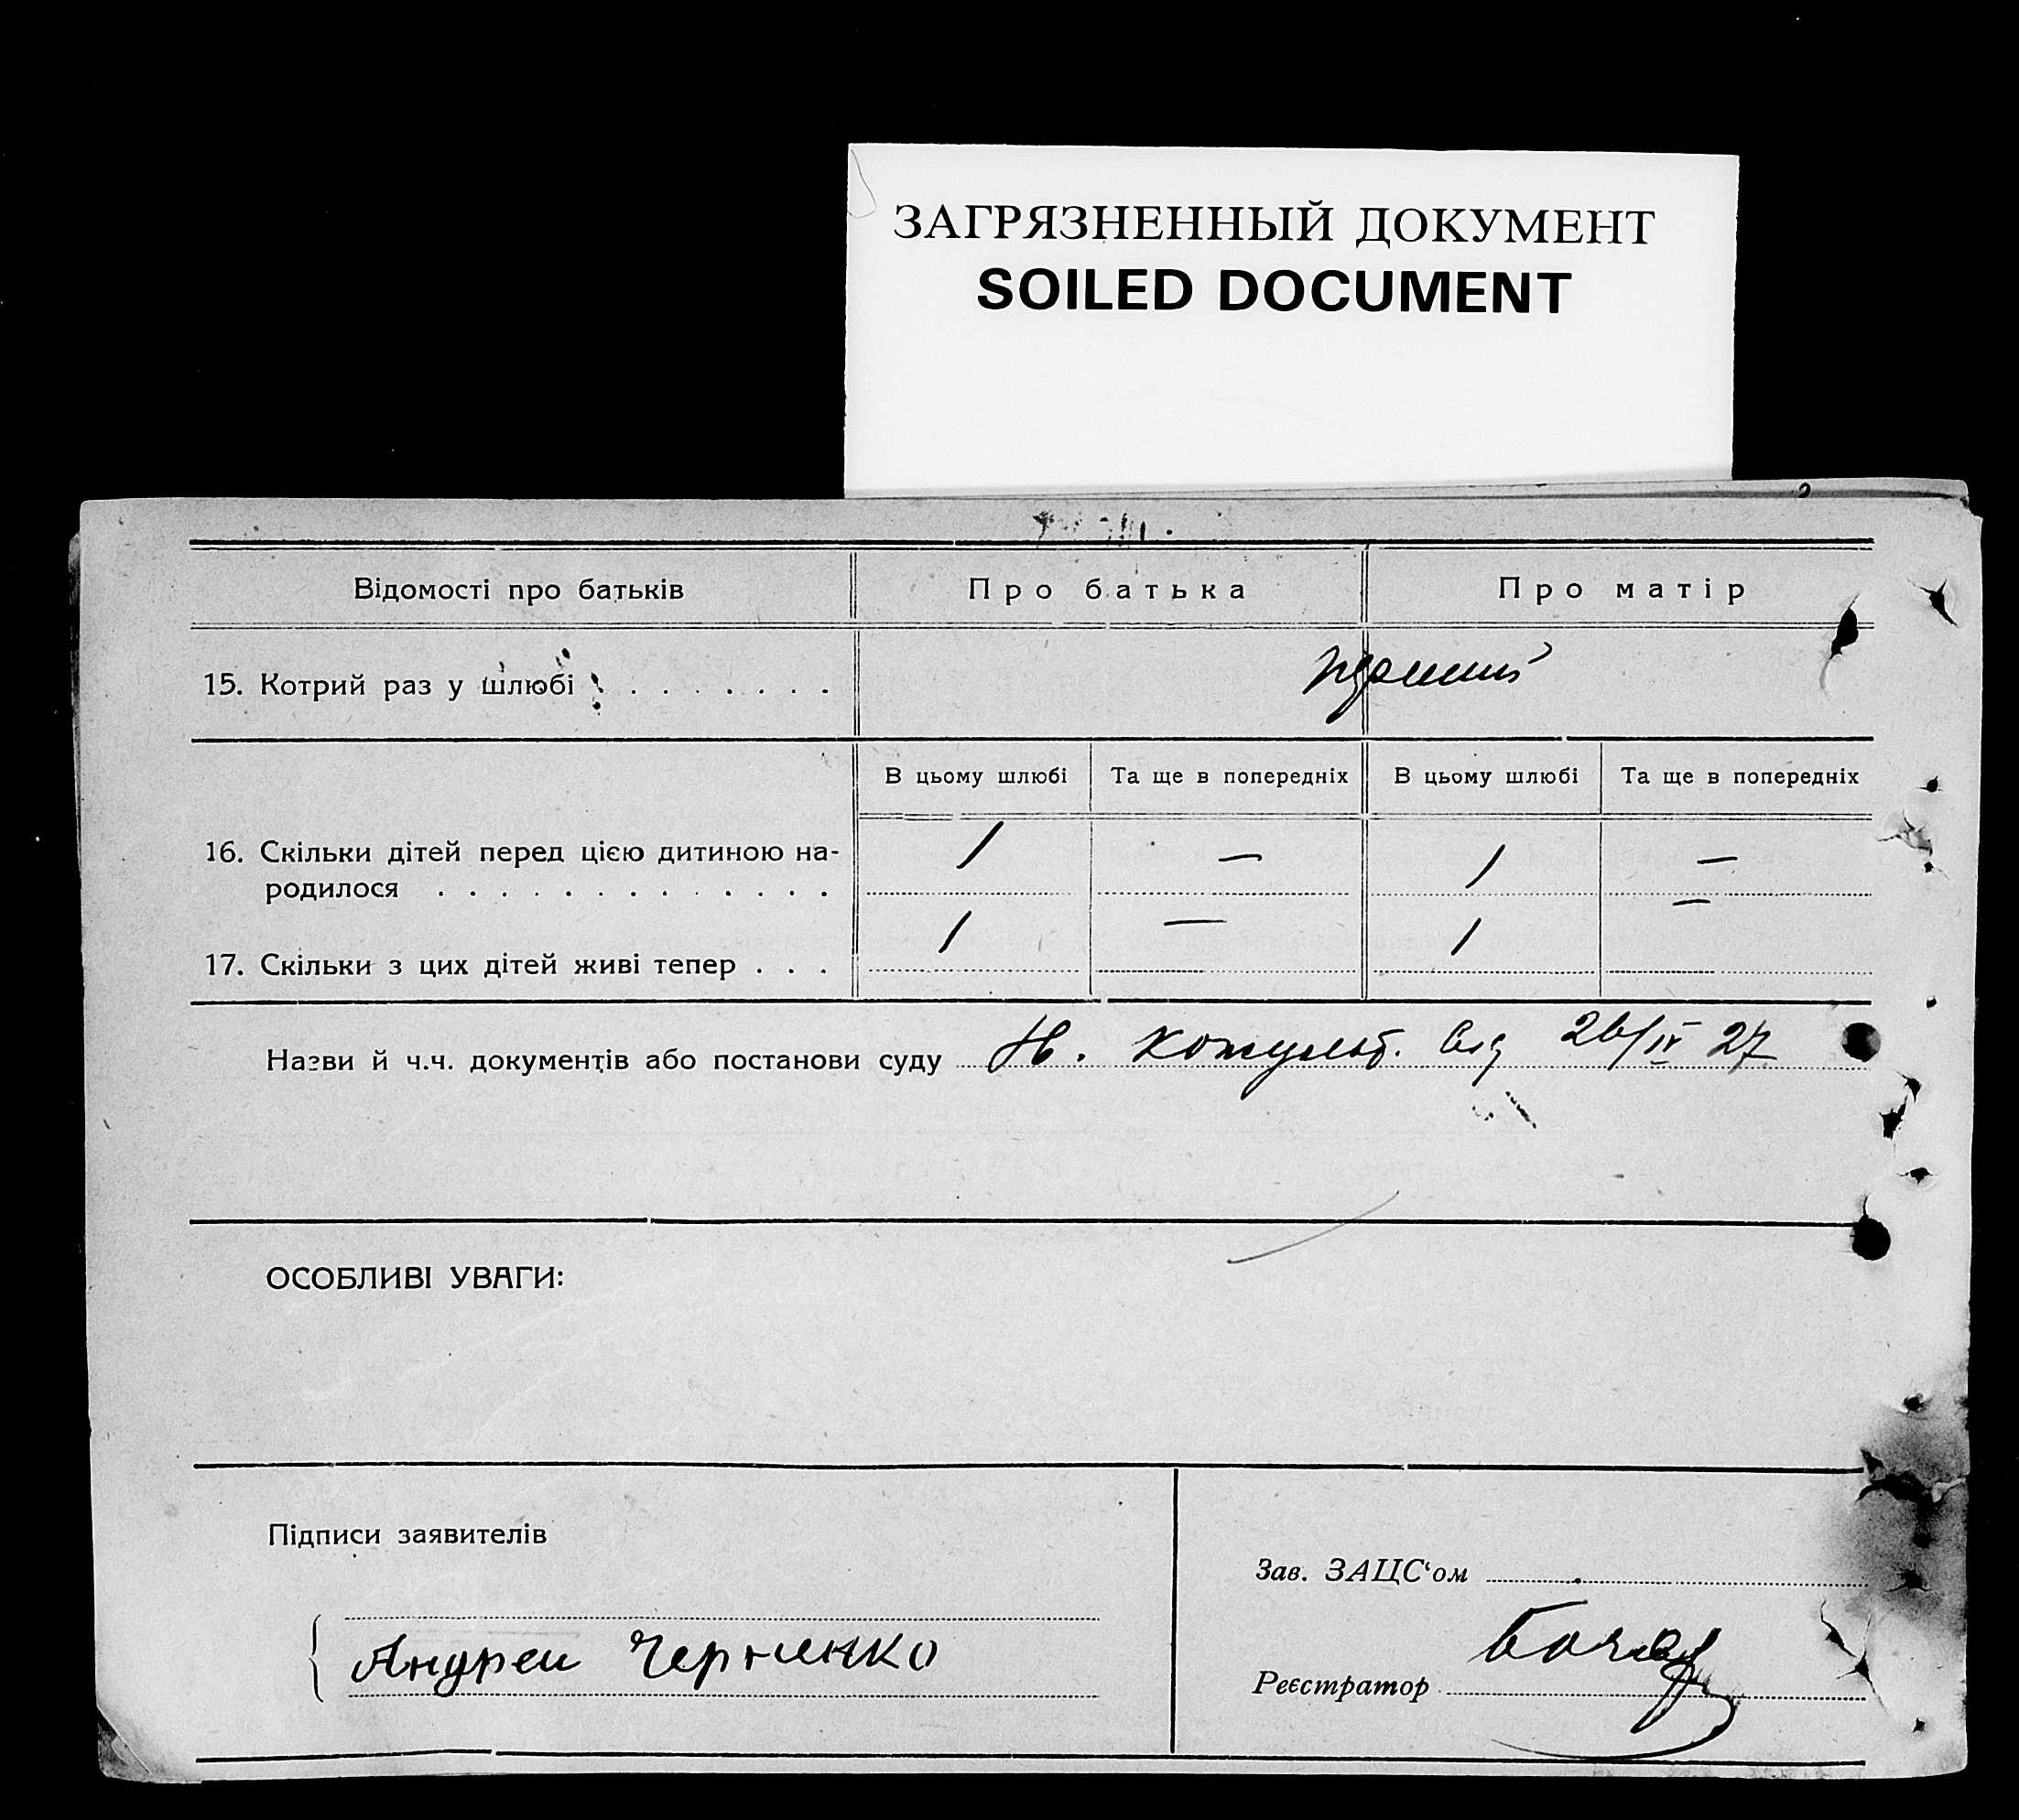 ЗАГРЯЗНЕННЫЙ ДОКУМЕНТ
SOILED DOCUMENT
Відомості про батьків
Про батька
Про матір
15. Котрий раз у шлюбі . . . . . . .
В цьому шлюбі
Та ще в попередніх
В цьому шлюбі
Та ще в попередніх
16. Скільки дітей перед цією дитиною на-
родилося . . . . . . . . . . . . . .
1 — 1 —
17. Скільки з цих дітей живі тепер . . .
1 — 1 —
Назви й ч.ч. документів або постанови суду від 26/IV 27
ОСОБЛИВІ УВАГИ:
Підписи заявителів
Андреи Черненко
Зав. ЗАЦС‘ом
Реєстратор